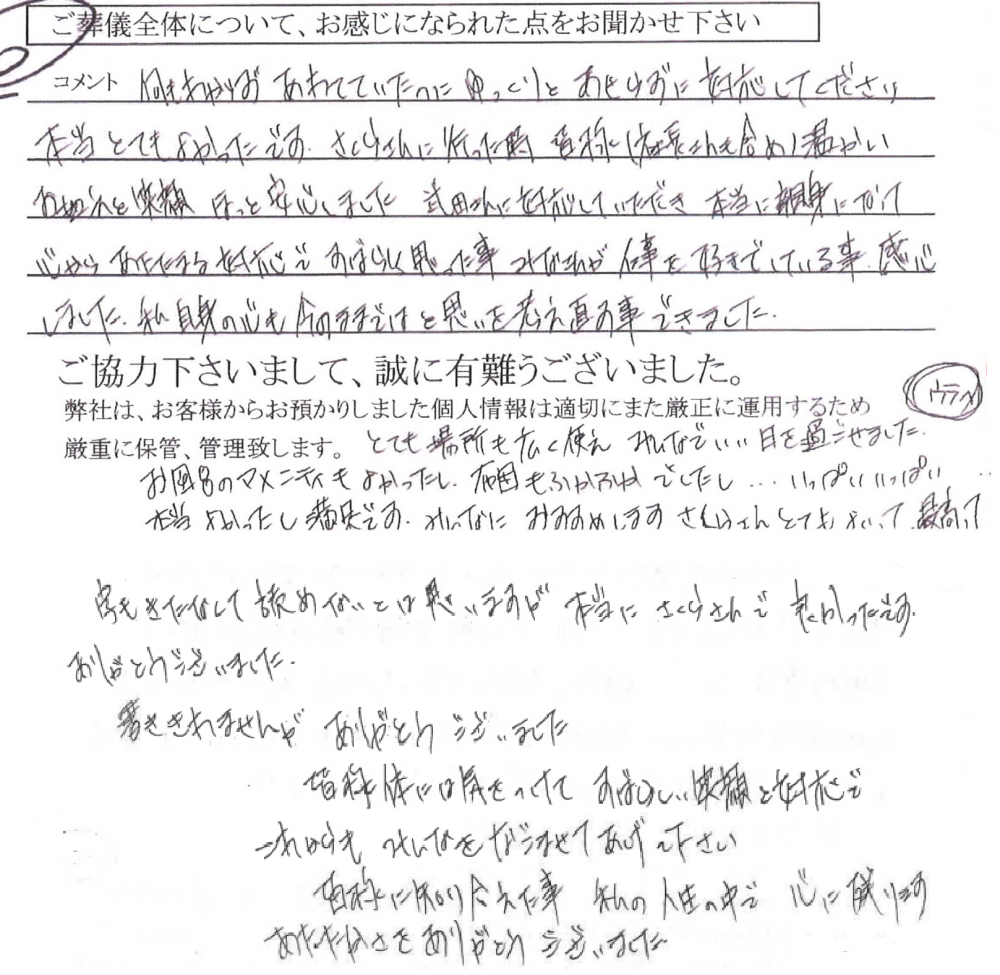 ご葬儀全体について、お感じになられた点をお聞かせ下さい
コメント 何もわからず あわてていたのに ゆっくりと あせらずに 対応してください
本当 とてもよかったです。さくらさんに行った時 皆様(社長さんも含め)温かい
お迎えと笑顔 ほっと安心しました 武田さんに対応していただき 本当に親身になって
心から あたたまる対応で すばらしく思った事 みなさんが仕事を好きでしている事 感心
しました。私自身の心も今のままではと思いを考え直す事できました。
ご協力下さいまして、誠に有難うございました。
ウラへ
弊社は、お客様からお預かりしました個人情報は適切にまた厳正に運用するため
厳重に保管、管理致します。 とても場所も広く使え みんなでいい日を過ごせました。
お風呂のアメニティもよかったし、布団もふかふかでしたし… いっぱいいっぱい…
本当よかったし満足です。みんなに おすすめします さくらさん とてもよいって 最高って
字もきたなくて読めないとは思いますが 本当に さくらさんで 良かったです。
ありがとうございました。
書ききれませんが ありがとうございました
皆様 体には気をつけて すばらしい笑顔と対応で
これからも みんなをなごませてあげて下さい
皆様に知り合えた事 私の人生の中で 心に残ります
あたたかさをありがとうございました